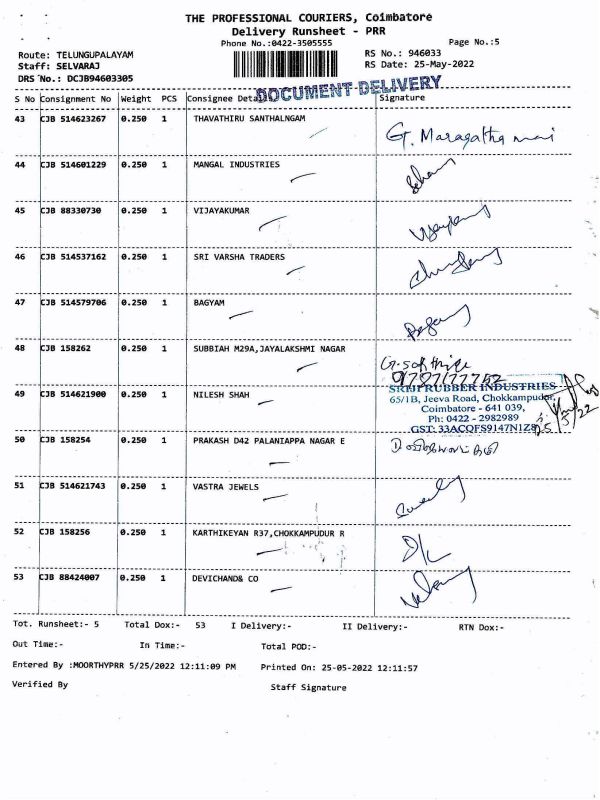 THE PROFESSIONAL COURIERS, Coimbatore
Delivery Runsheet - PRR
Phone No.:0422-3505555
Page No.:5
Route: TELUNGUPALAYAM
RS No.: 946033
Staff: SELVARAJ
RS Date: 25-May-2022
DRS No.: DCJB94603305
DOCUMENT DELIVERY
S No Consignment No Weight PCS Consignee Details Signature
43 CJB 514623267 0.250 1 THAVATHIRU SANTHALNGAM
G. Maragatha mani
44 CJB 514601229 0.250 1 MANGAL INDUSTRIES
45 CJB 88330730 0.250 1 VIJAYAKUMAR
46 CJB 514537162 0.250 1 SRI VARSHA TRADERS
47 CJB 514579706 0.250 1 BAGYAM
48 CJB 158262 0.250 1 SUBBIAH M29A,JAYALAKSHMI NAGAR
G. Sakthive
9787177752
49 CJB 514621900 0.250 1 NILESH SHAH
RUBBER INDUSTRIES
65/1B, Jeeva Road, Chokkampudur,
Coimbatore - 641 039,
Ph: 0422 - 2982989
GST: 33ACQFS9147N1Z8
50 CJB 158254 0.250 1 PRAKASH D42 PALANIAPPA NAGAR E
51 CJB 514621743 0.250 1 VASTRA JEWELS
52 CJB 158256 0.250 1 KARTHIKEYAN R37,CHOKKAMPUDUR R
53 CJB 88424007 0.250 1 DEVICHAND& CO
Tot. Runsheet:- 5 Total Dox:- 53 I Delivery:- II Delivery:- RTN Dox:-
Out Time:- In Time:- Total POD:-
Entered By :MOORTHYPRR 5/25/2022 12:11:09 PM Printed On: 25-05-2022 12:11:57
Verified By Staff Signature